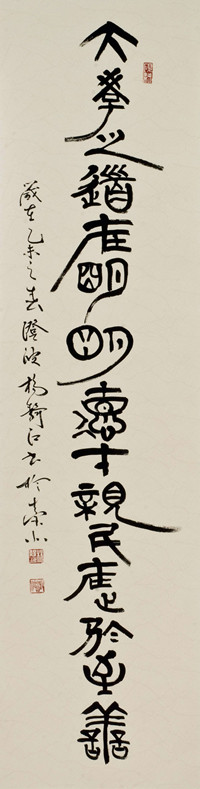 大學之道在明明德才親民在止於至善
歲在乙未之春澄波楊錦江書於京小